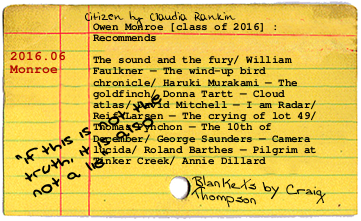 Citizen by Claudia Rankin
Owen Monroe [class of 2016] :
Recommends
2016.06
Monroe
The sound and the fury/ William
Faulkner – The wind-up bird
chronicle/ Haruki Murakami – The
goldfinch/ Donna Tartt – Cloud
atlas/ David Mitchell – I am Radar/
Reif Larsen – The crying of lot 49/
Thomas Pynchon – The 10th of
December/ George Saunders – Camera
lucida/ Roland Barthes – Pilgrim at
Tinker Creek/ Annie Dillard
"if this is not the
truth, it is also
not a lie"
Blankets by Craig
Thompson